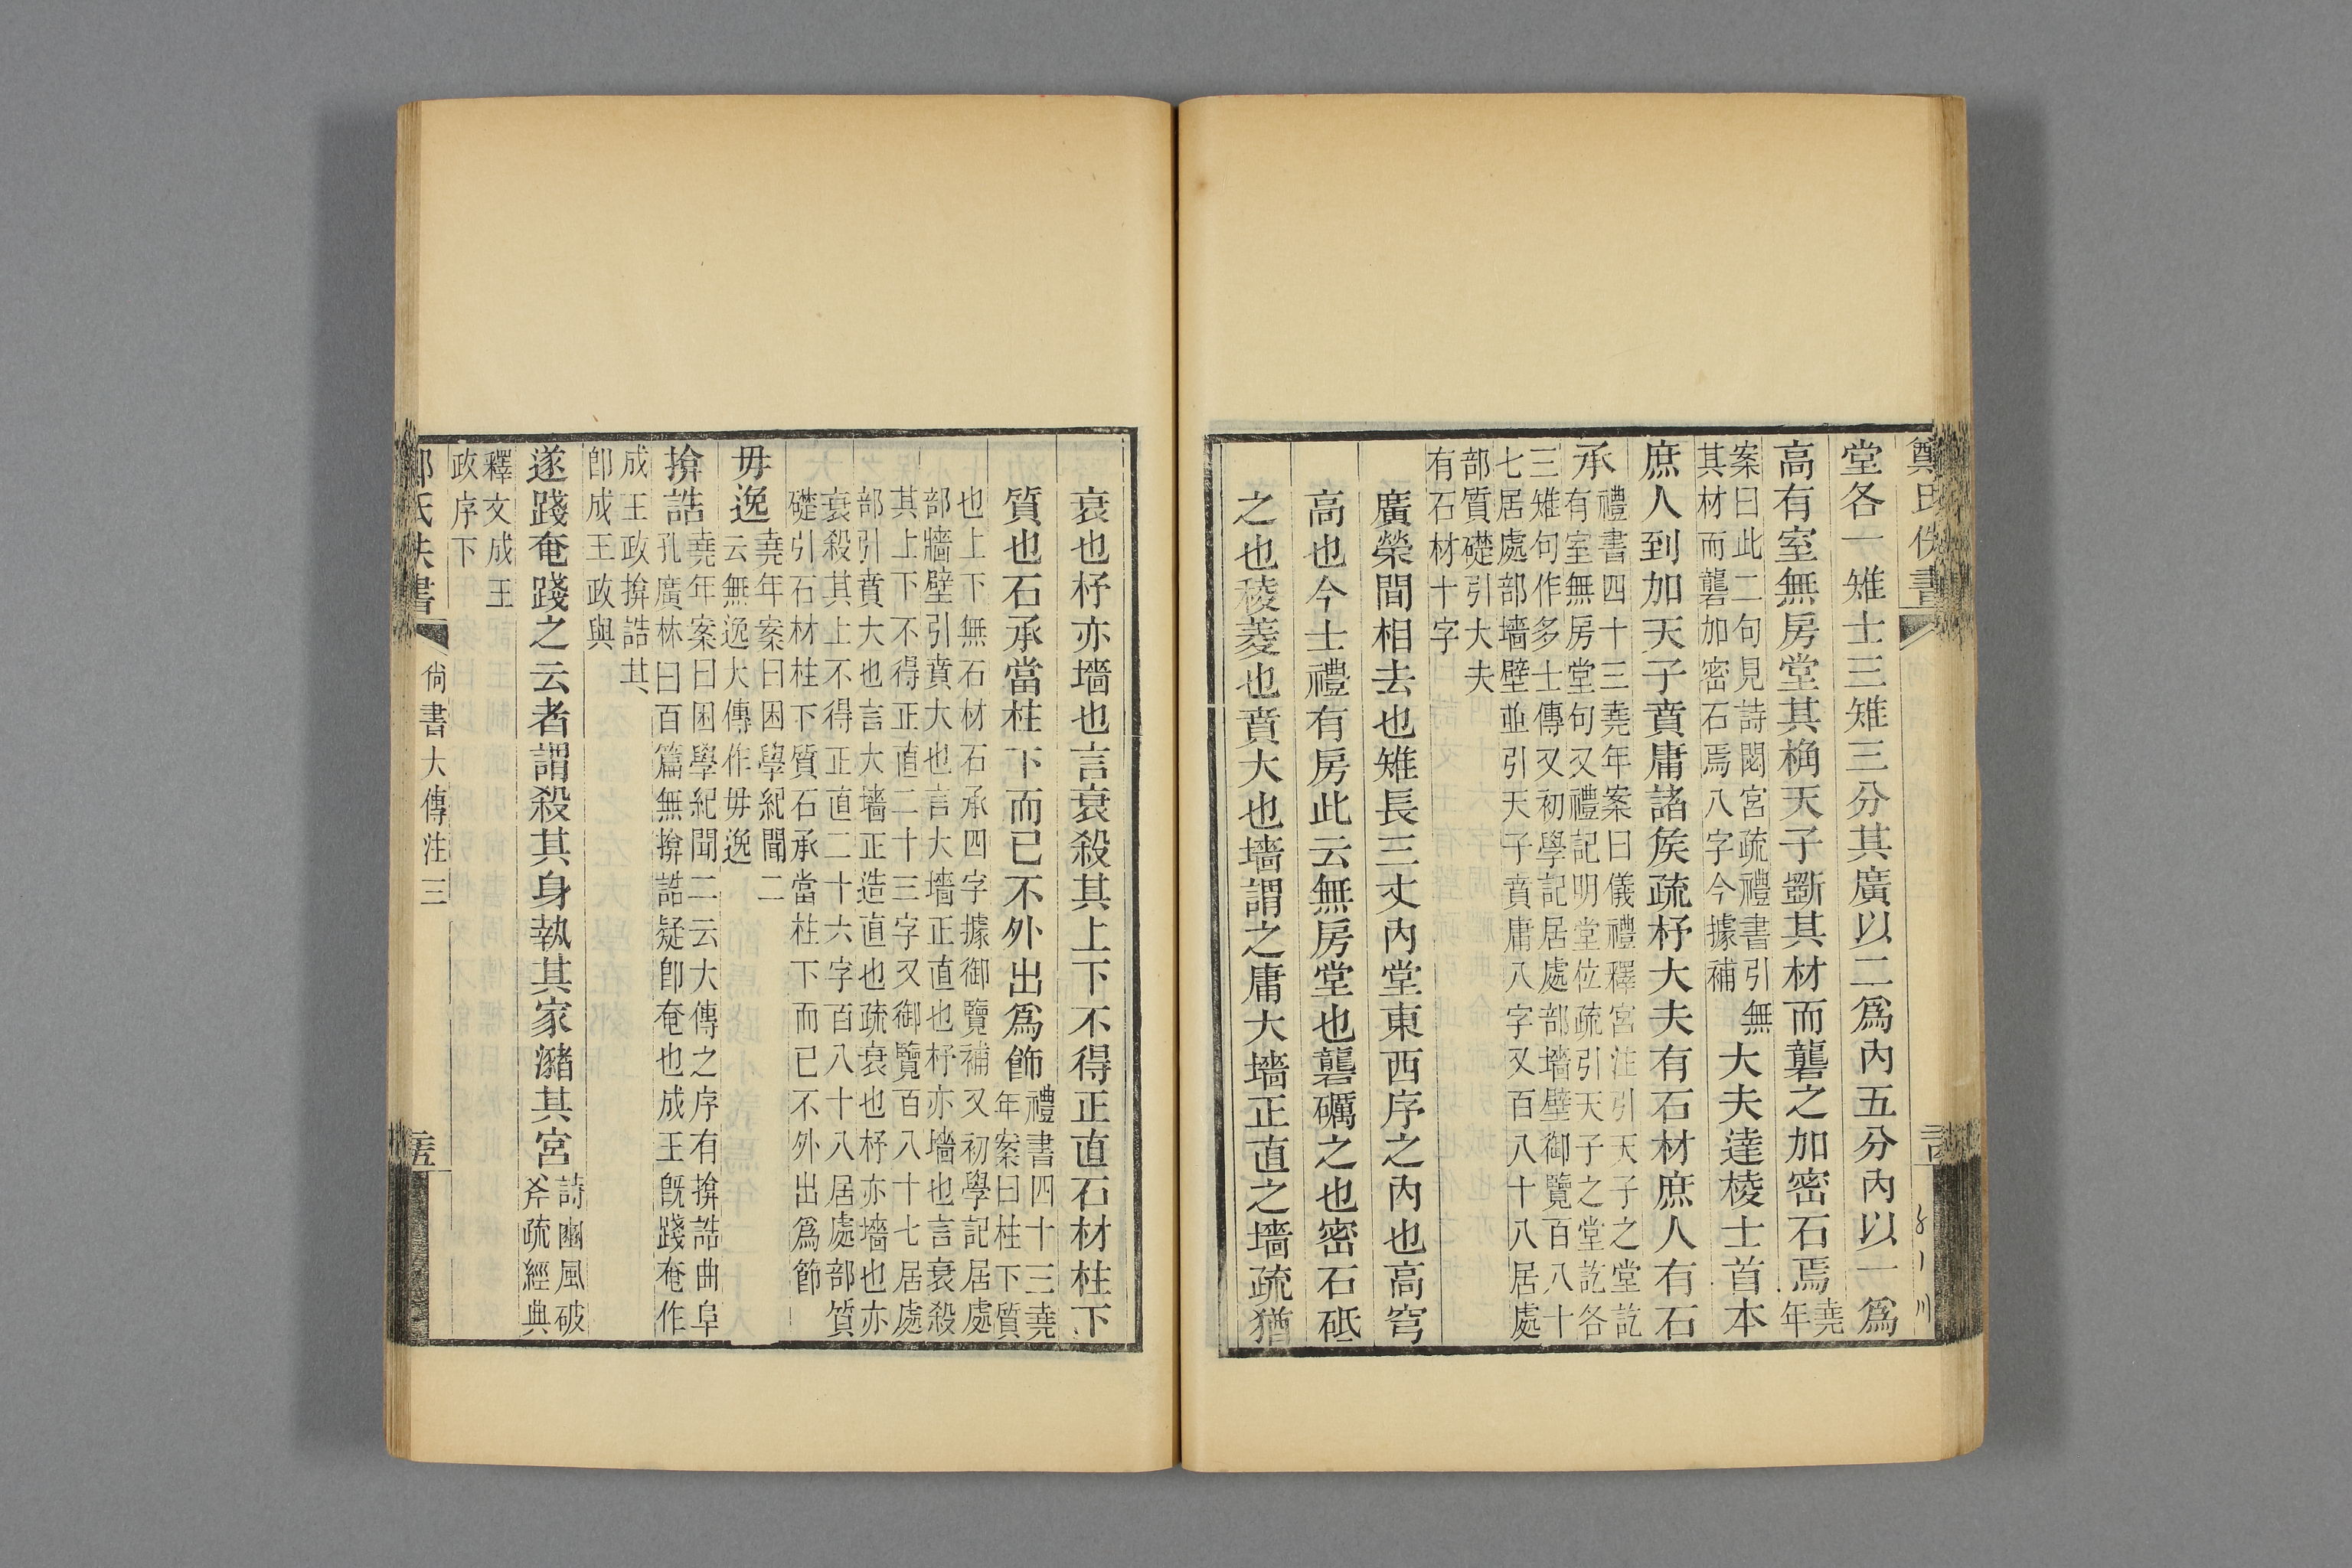 鄭氏佚書
堂各一雉士三雉三分其廣以二爲內五分內以一爲
高有室無房堂其桷天子斲其材而礱之加密石焉堯
年
案曰此二句見詩閟宮疏禮書引無
其材而礱加密石焉八字今據補
大夫達棱士首本
庶人到加天子賁庸諸矦疏杼大夫有石材庶人有石
承
禮書四十三堯年案曰儀禮釋宮注引天子之堂訖
有室無房堂句又禮記明堂位疏引天子之堂訖各
三雉句作多士傳又初學記居處部墻壁御覽百八十
七居處部墻壁並引天子賁庸八字又百八十八居處
部質礎引大夫
有石材十字
廣榮間相去也雉長三丈內堂東西序之內也高穹
高也今士禮有房此云無房堂也礱礪之也密石砥
之也稜菱也賁大也墻謂之庸大墻正直之墻疏猶
衰也杼亦墻也言衰殺其上下不得正直石材柱下
質也石承當柱下而已不外出爲飾
禮書四十三堯
年案曰柱下質
也上下無石材石承四字據御覽補又初學記居處
部牆壁引賁大也言大墻正直也杼亦墻也言衰殺
其上下不得正直二十三字又御覽百八十七居處
部引賁大也言大墻正造直也疏衰也杼亦墻也亦
衰殺其上不得正直二十六字百八十八居處部質
礎引石材柱下質石承當柱下而已不外出爲節
毋逸
堯年案曰困學紀聞二
云無逸大傳作毋逸
揜誥
堯年案曰困學紀聞二云大傳之序有揜誥曲阜
孔廣林曰百篇無揜誥疑卽奄也成王旣踐奄作
成王政揜誥其
卽成王政與
遂踐奄踐之云者謂殺其身執其家瀦其宮
詩豳風破
斧疏經典
釋文成王
政序下
尙書大傳注三